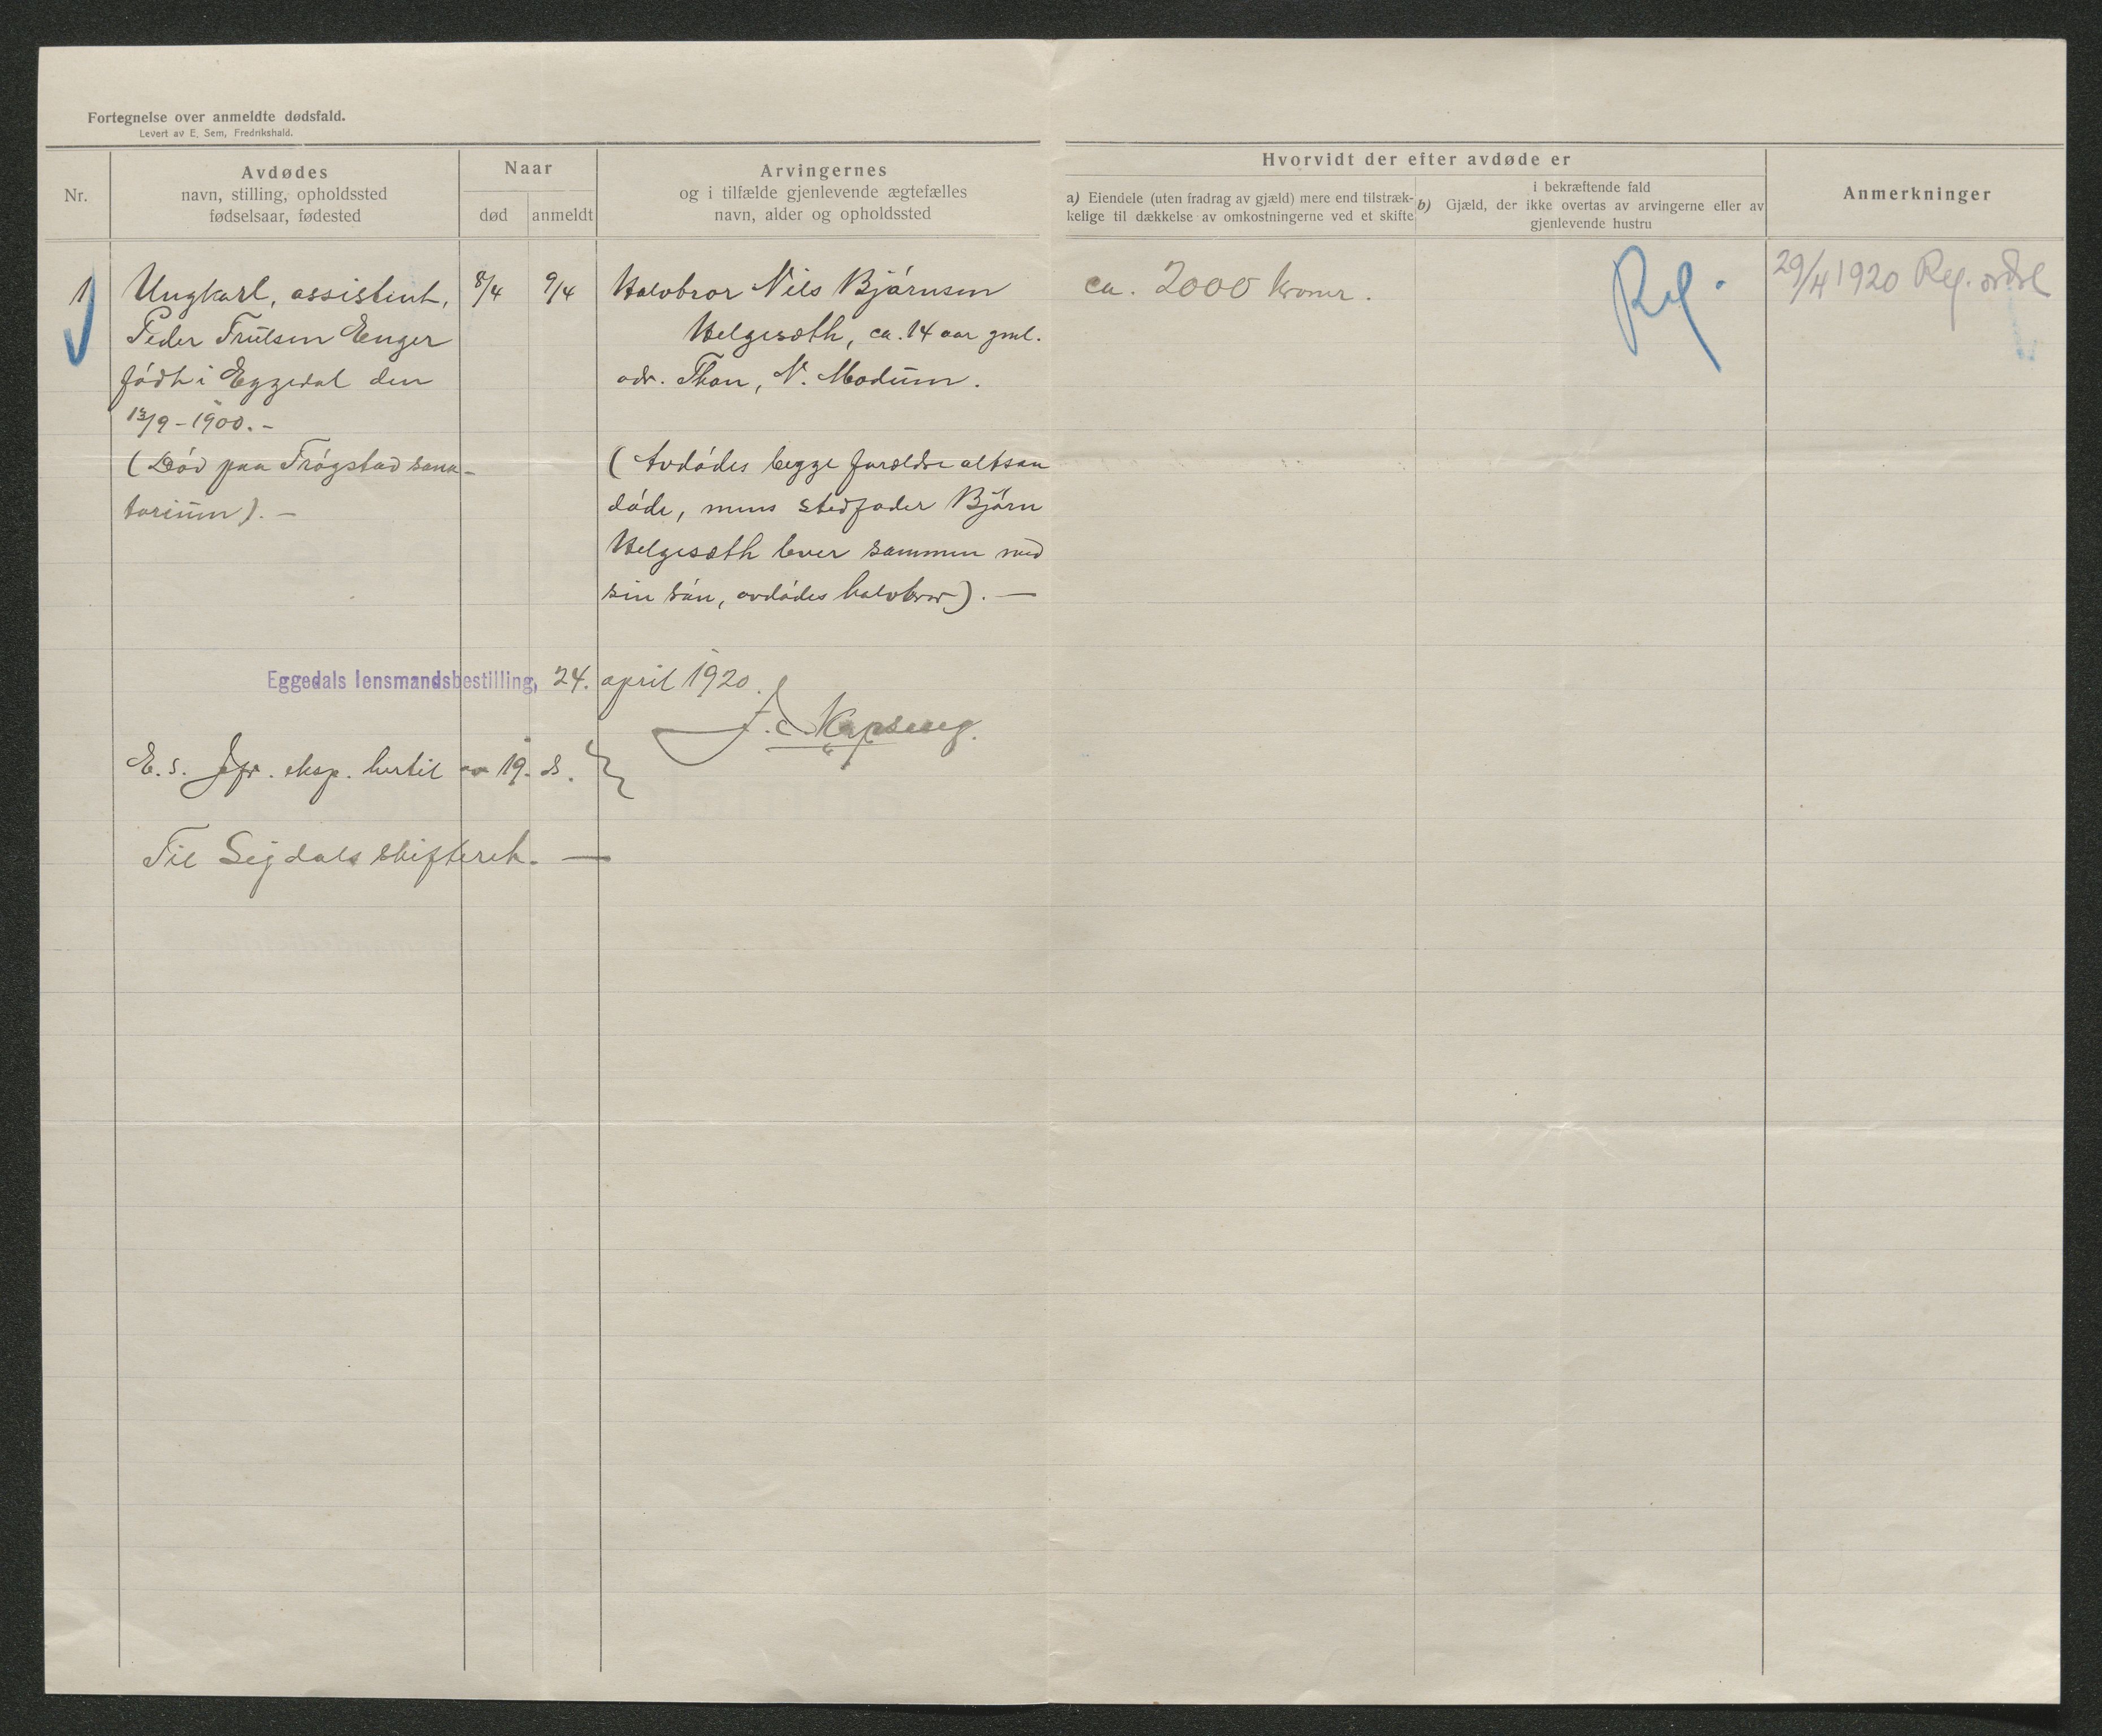 Fortegnelse over anmeldte dødsfald.
Levert av E. Sem, Fredrikshald.
Nr.
Avdødes
navn, stilling, opholdssted
fødselsaar, fødested
Naar
død
anmeldt
Arvingernes
og i tilfælde gjenlevende ægtefælles
navn, alder og opholdssted
Hvorvidt der efter avdøde er
a) Eiendele (uten fradrag av gjæld) mere end tilstræk-
kelige til dækkelse av omkostningerne ved et skifte
i bekræftende fald
b) Gjæld, der ikke overtas av arvingerne eller av
gjenlevende hustru
Anmerkninger
1
Ungkarl, assistent,
Peder Trulsen Enger
født i Eggedal den
13/9 - 1900. -
(Død paa Trøgstad sana-
torium). -
8/4
9/4
Halvbror Nils Bjørnsen
Helgesæth, ca. 14 aar gml.
adr. Thon, N. Modum.
(Avdødes begge forældre altsaa
døde, mens stedfader Bjørn
Helgesæth lever sammen med
sin søn, avdødes halvbror). -
ca. 2000 kroner.
Reg.
29/4 1920 Reg.
Eggedals lensmandsbestilling, 24. april 1920.
E. s. Jfr. eksp. hertil av 19. ds.
Til Sigdals skifteret. -